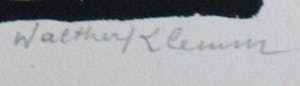 Walther Klemm